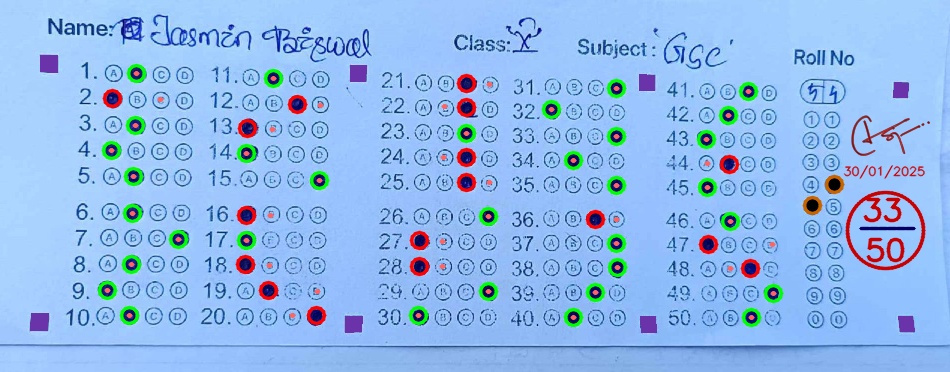 Name: Jasmin Biswal
Class: 'X'
Subject: 'GSC'
Roll No
54
1. A B C D
2. A B C D
3. A B C D
4. A B C D
5. A B C D
6. A B C D
7. A B C D
8. A B C D
9. A B C D
10. A B C D
11. A B C D
12. A B C D
13. A B C D
14. A B C D
15. A B C D
16. A B C D
17. A B C D
18. A B C D
19. A B C D
20. A B C D
21. A B C D
22. A B C D
23. A B C D
24. A B C D
25. A B C D
26. A B C D
27. A B C D
28. A B C D
29. A B C D
30. A B C D
31. A B C D
32. A B C D
33. A B C D
34. A B C D
35. A B C D
36. A B C D
37. A B C D
38. A B C D
39. A B C D
40. A B C D
41. A B C D
42. A B C D
43. A B C D
44. A B C D
45. A B C D
46. A B C D
47. A B C D
48. A B C D
49. A B C D
50. A B C D
1 1
2 2
3 3
4
5
6 6
7 7
8 8
9 9
0 0
30/01/2025
33
50